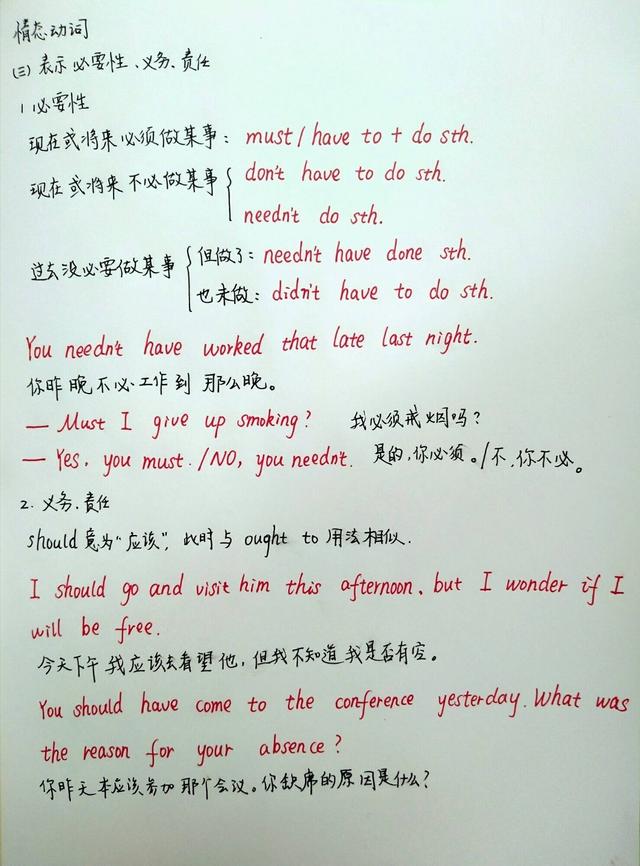 情态动词
(三) 表示必要性、义务、责任
1 必要性
现在或将来必须做某事: must / have to + do sth.
现在或将来不必做某事 { don't have to do sth.
needn't do sth.
过去没必要做某事 { 但做了: needn't have done sth.
也未做: didn't have to do sth.
You needn't have worked that late last night.
你昨晚不必工作到那么晚。
— Must I give up smoking? 我必须戒烟吗?
— Yes, you must. /NO, you needn't. 是的,你必须。/不,你不必。
2. 义务、责任
should 意为“应该”, 此时与 ought to 用法相似.
I should go and visit him this afternoon, but I wonder if I
will be free.
今天下午我应该去看望他,但我不知道我是否有空。
You should have come to the conference yesterday. What was
the reason for your absence?
你昨天本应该参加那个会议。你缺席的原因是什么?